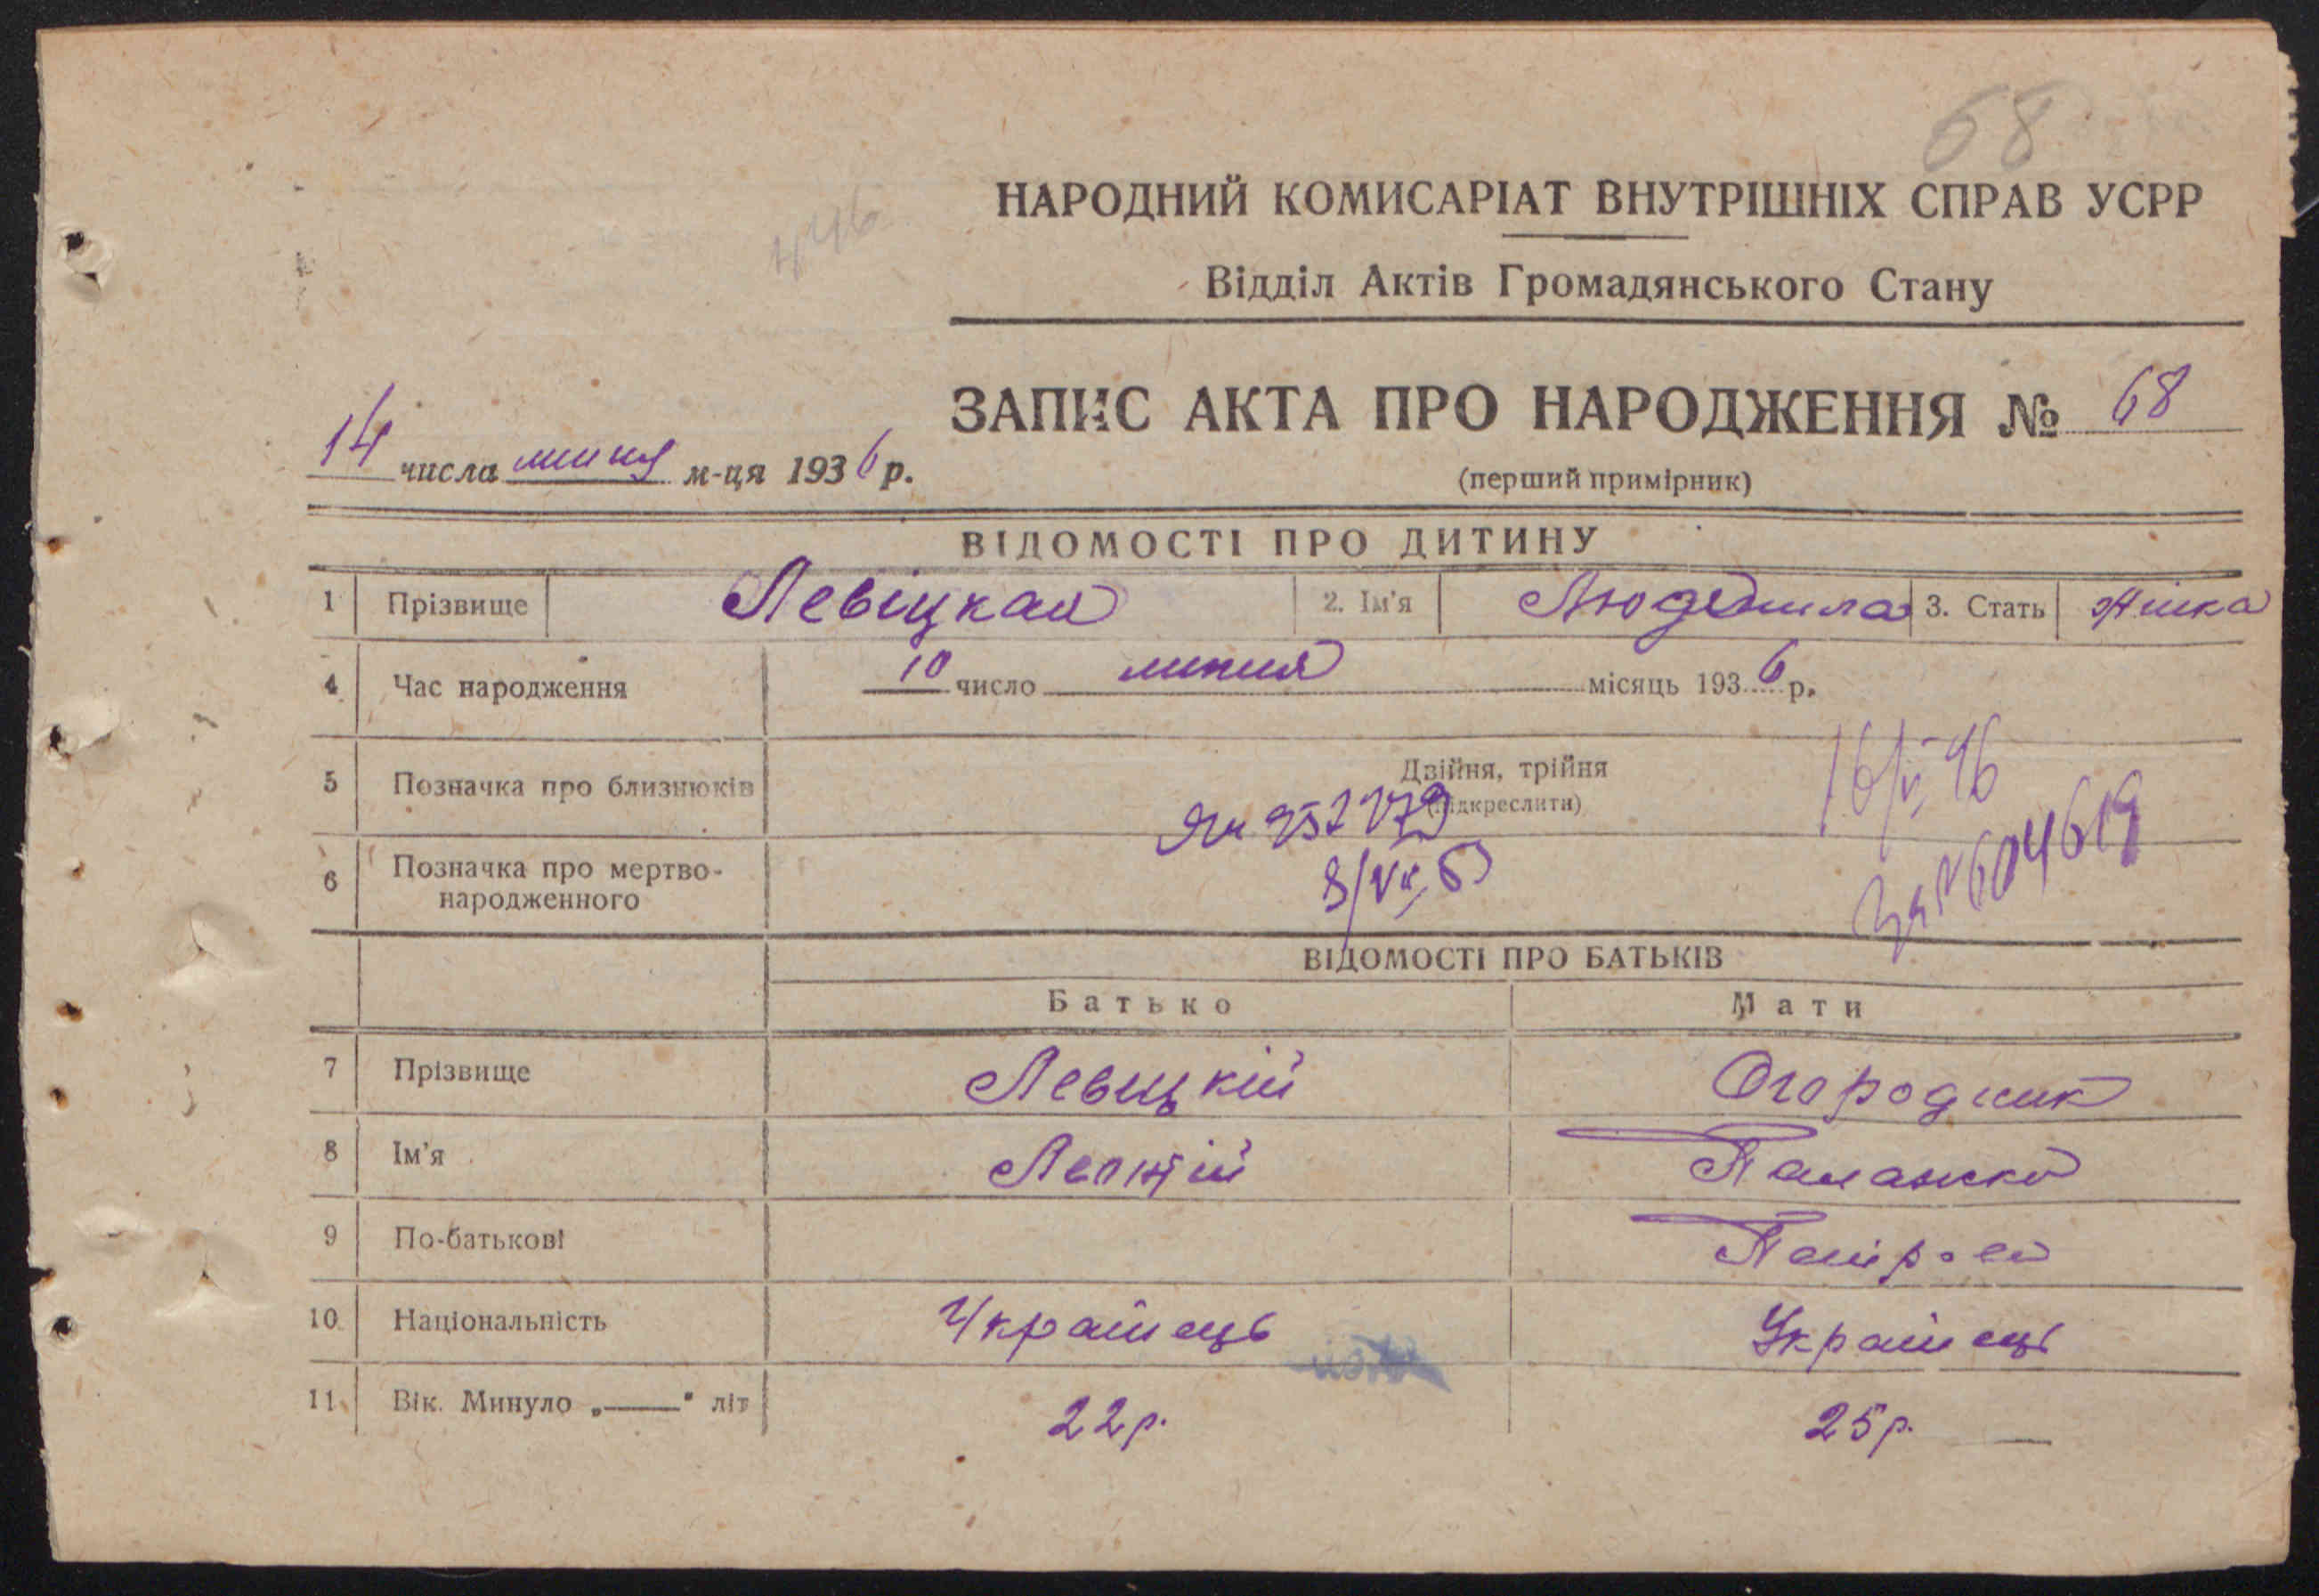 68
446
НАРОДНИЙ КОМИСАРІАТ ВНУТРІШНІХ СПРАВ УСРР
Відділ Актів Громадянського Стану
ЗАПИС АКТА ПРО НАРОДЖЕННЯ № 68
14 числа липня м-ця 1936 р.
(перший примірник)
ВІДОМОСТІ ПРО ДИТИНУ
1 Прізвище Левіцкая 2. Ім'я Людмила 3. Стать Жінка
4 Час народження 10 число липня місяць 1936 р.
5 Позначка про близнюків Двійня, трійня
(підкреслити)
16/V 96
6 Позначка про мертво-
народженного
ВІДОМОСТІ ПРО БАТЬКІВ
Батько Мати
7 Прізвище Левицкій Огородник
8 Ім'я Палажка
9 По-батькові
10 Національність Українець Українець
11 Вік. Минуло „——" літ 22 р. 25 р.